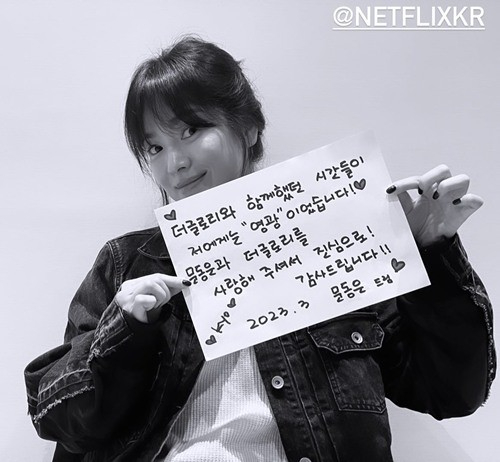 @NETFLIXKR
더글로리와 함께했던 시간들이
저에게는 "영광"이었습니다!
문동은과 더글로리를
사랑해 주셔서 진심으로!
감사드립니다!!
kyo 2023.3 문동은 드림